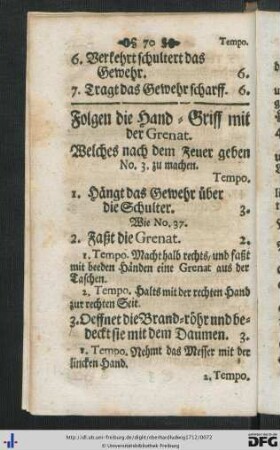 ❧ 70 ☙ Tempo.
6. Verkehrt schultert das
Gewehr. 6.
7. Tragt das Gewehr scharff. 6.
Folgen die Hand-Griff mit
der Grenat.
Welches nach dem Feuer geben
No. 3. zu machen.
Tempo.
1. Hängt das Gewehr über
die Schulter. 3.
Wie No. 37.
2. Faßt die Grenat. 2.
1. Tempo. Macht halb rechts/ und faßt
mit beeden Händen eine Grenat aus der
Taschen.
2. Tempo. Halts mit der rechten Hand
zur rechten Seit.
3. Oeffnet die Brand-röhr und be-
deckt sie mit dem Daumen. 3.
1. Tempo. Nehmt das Messer mit der
lincken Hand.
2. Tempo.
http://dl.ub.uni-freiburg.de/diglit/eberhardludwig1712/0072
© Universitätsbibliothek Freiburg
gefördert durch die
DFG